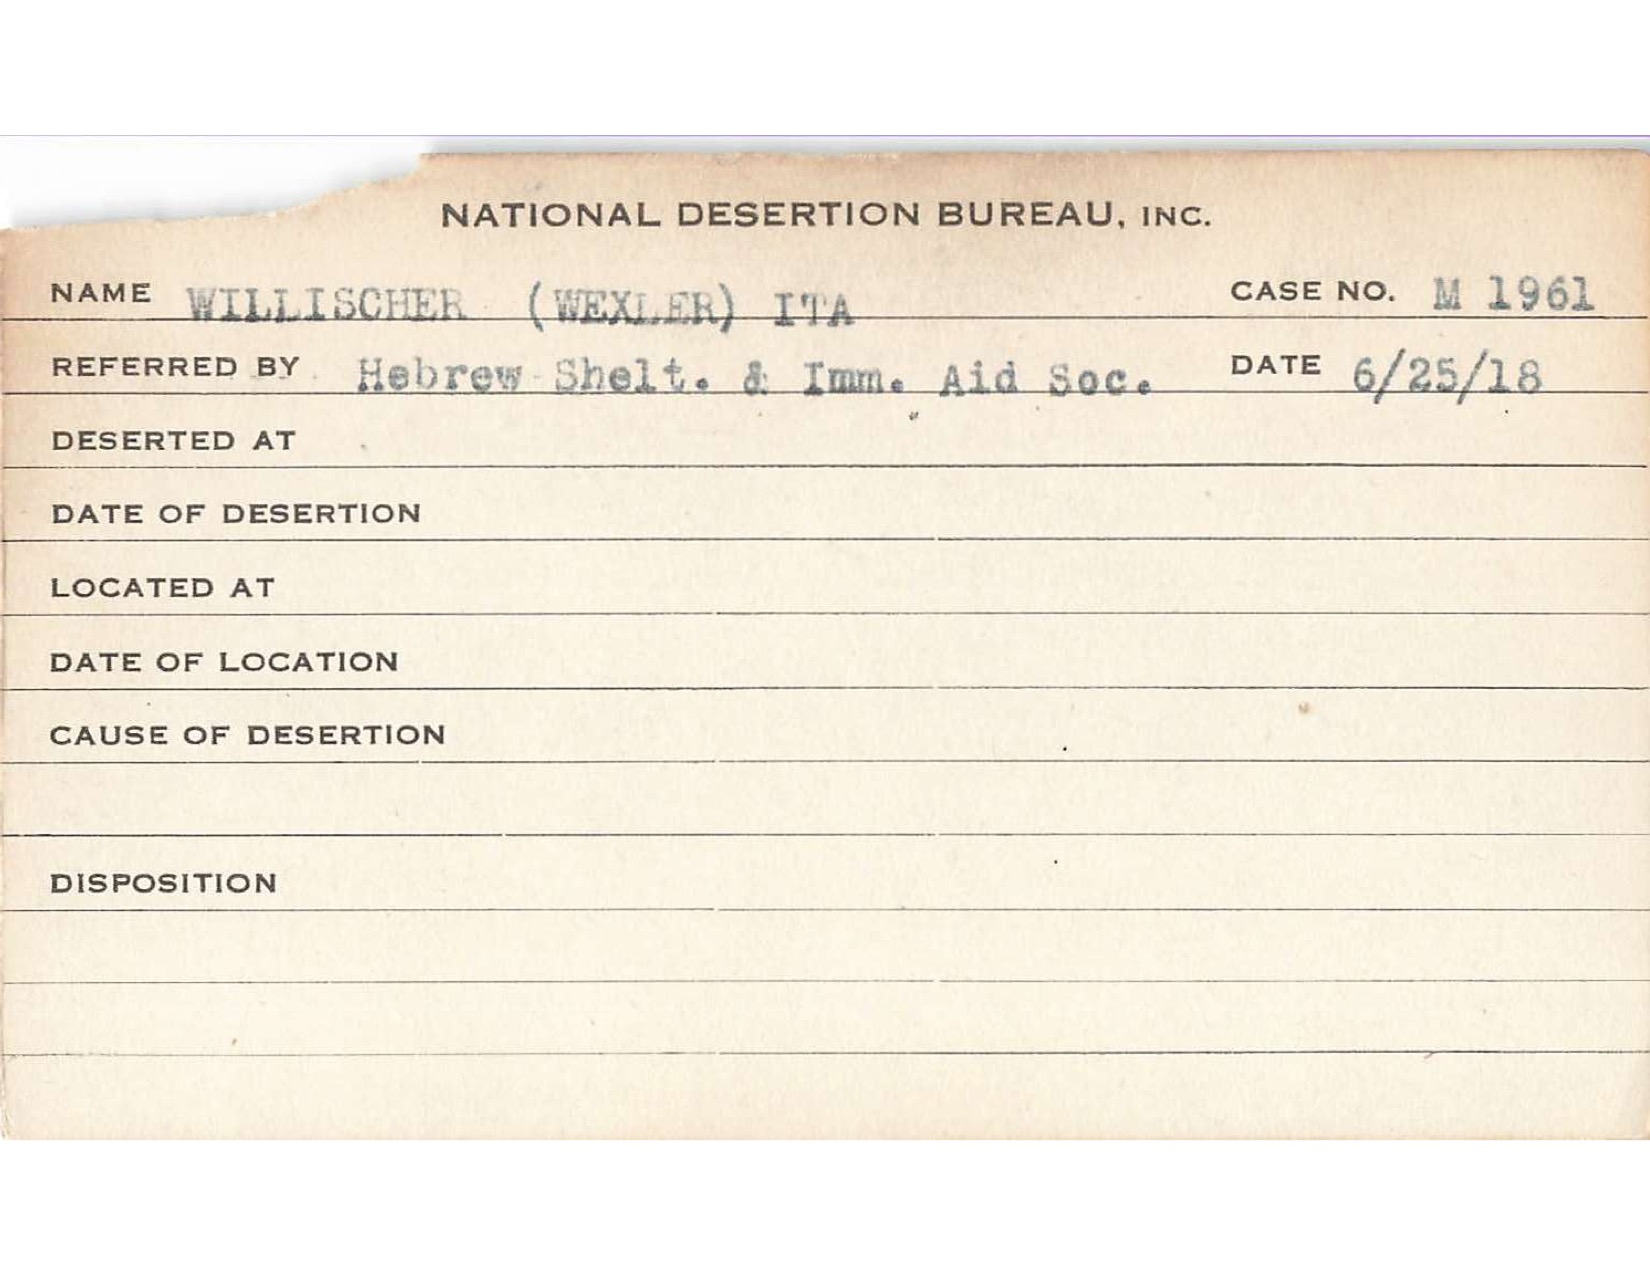 NATIONAL DESERTION BUREAU, INC.
NAME WILLISCHER (WEXLER) ITA CASE NO. M 1961
REFERRED BY Hebrew Shelt. & Imm. Aid Soc. DATE 6/25/18
DESERTED AT
DATE OF DESERTION
LOCATED AT
DATE OF LOCATION
CAUSE OF DESERTION
DISPOSITION